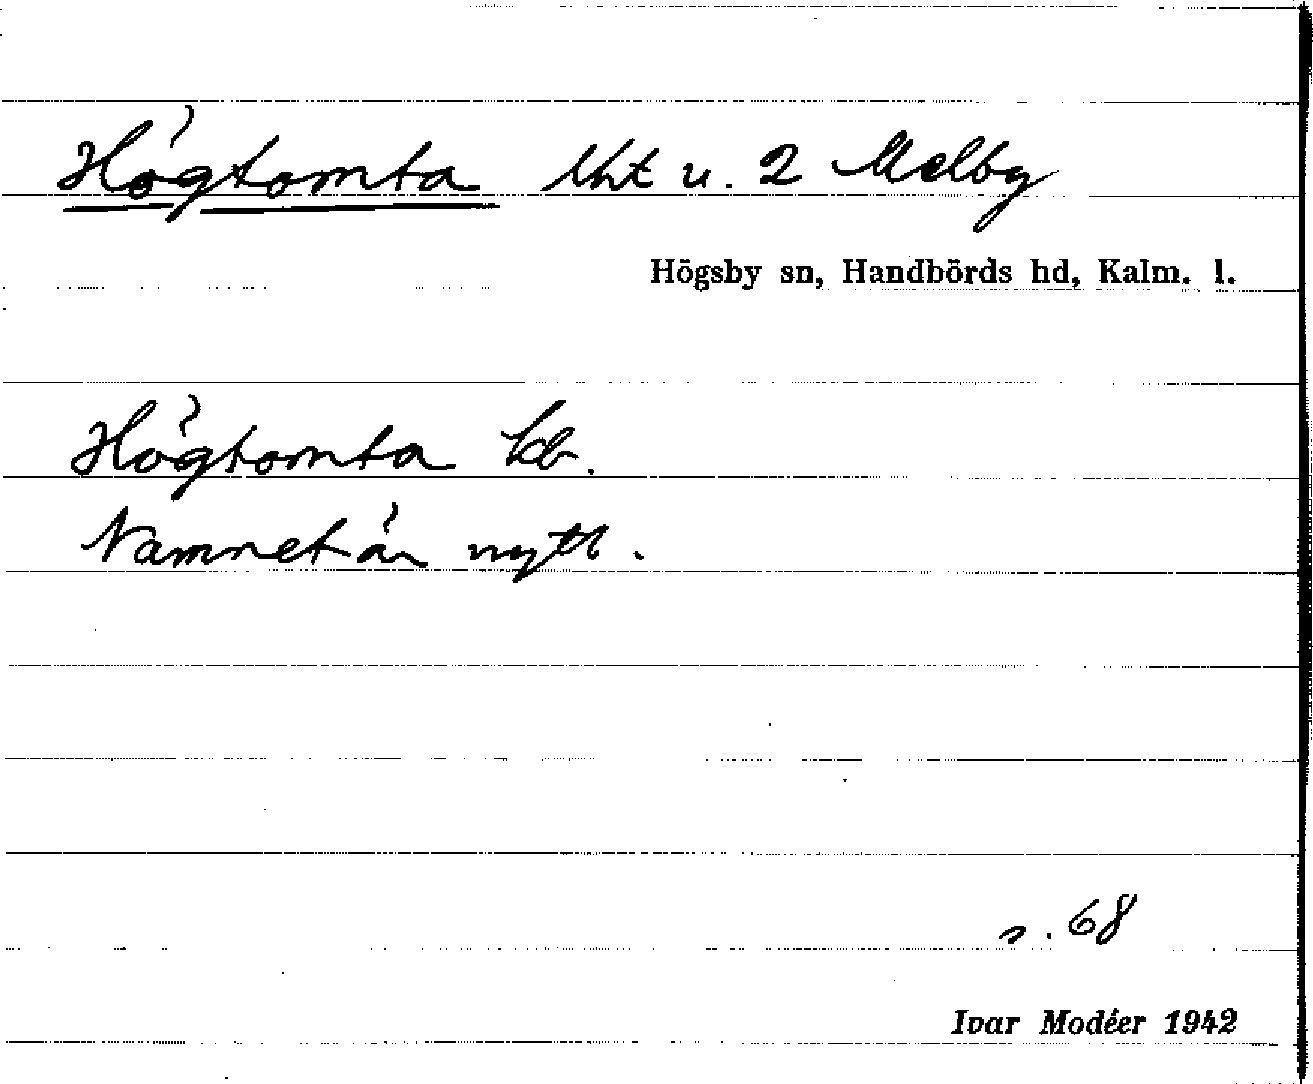 Högtomta lht u. 2 Melby
Högsby sn, Handbörds hd, Kalm. l.
Högtomta kb.
Namnet är nytt.
s. 68
Ivar Modéer 1942